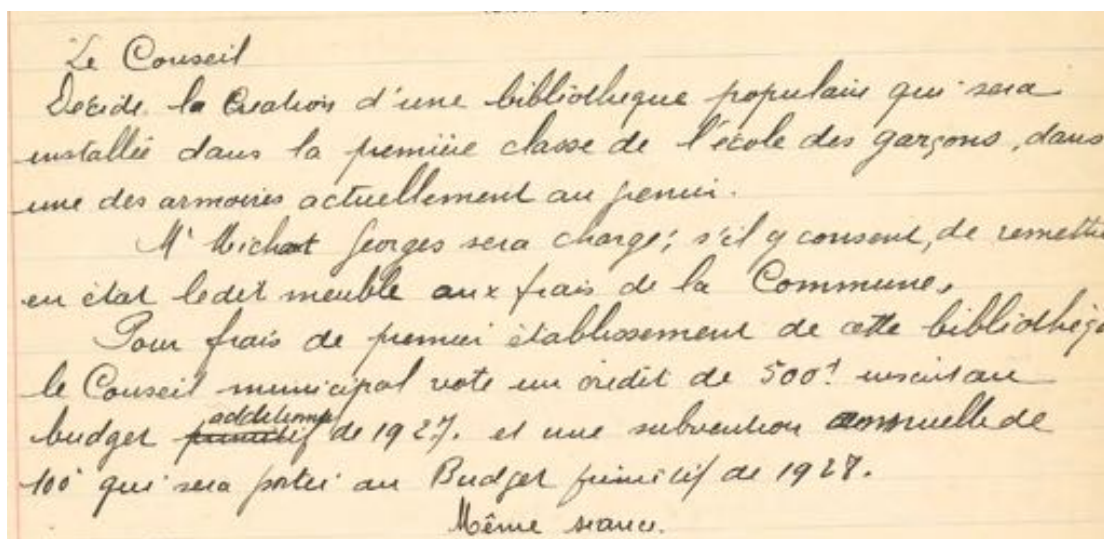 Le Conseil
Décide la Création d'une bibliothèque populaire qui sera
installée dans la première classe de l'école des garçons, dans
une des armoires actuellement au grenier.
Mr Michaut Georges sera chargé, s'il y consent, de remettre
en état ledit meuble aux frais de la Commune.
Pour frais de premier établissement de cette bibliothèq
le Conseil municipal vote un crédit de 500f inscrit au
budget primitif additionnel de 1927. et une subvention annuelle de
100f qui sera portée au Budget primitif de 1928.
Même séance.